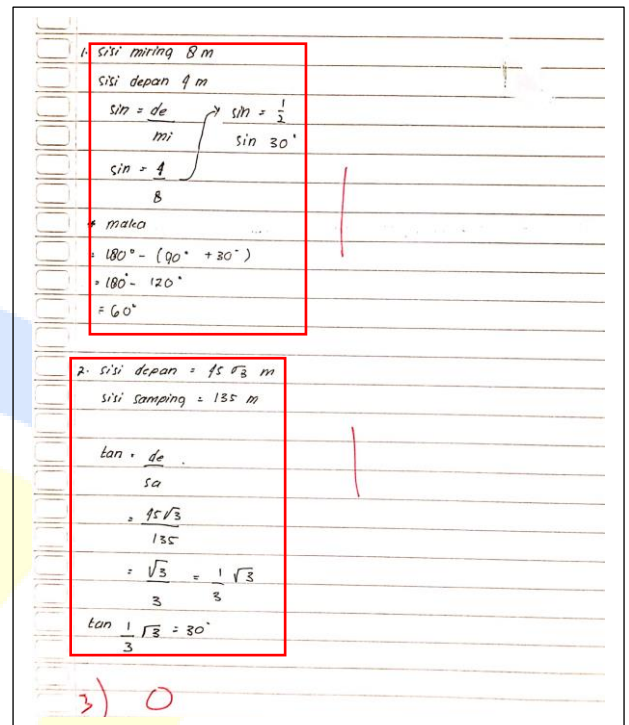 1. sisi miring 8 m
sisi depan 4 m
sin = de/mi
sin = 4/8
sin = 1/2
sin 30°
* maka
= 180° - (90° + 30°)
= 180° - 120°
= 60°
2. sisi depan = 45√3 m
sisi samping = 135 m
tan = de/sa
= 45√3/135
= √3/3 = 1/3 √3
tan 1/3 √3 = 30°
3) 0